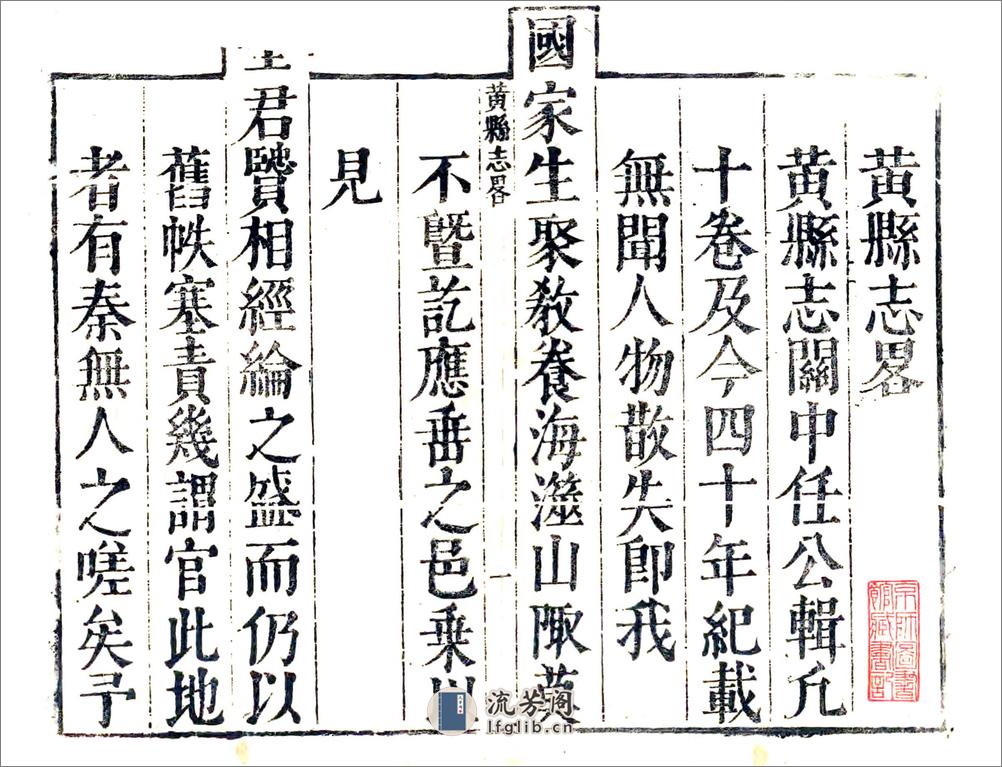 黄縣志畧
黄縣志關中任公輯凡
十卷及今四十年紀載
無聞人物散失卽我
國家生聚敎養海澨山陬莫
黄縣志畧
一
不曁訖應垂之邑乗以
見
聖君賢相經綸之盛而仍以
舊帙塞責幾謂官此地
者有秦無人之嗟矣予
京師圖書
館藏書記
流芳阁
lfglib.cn